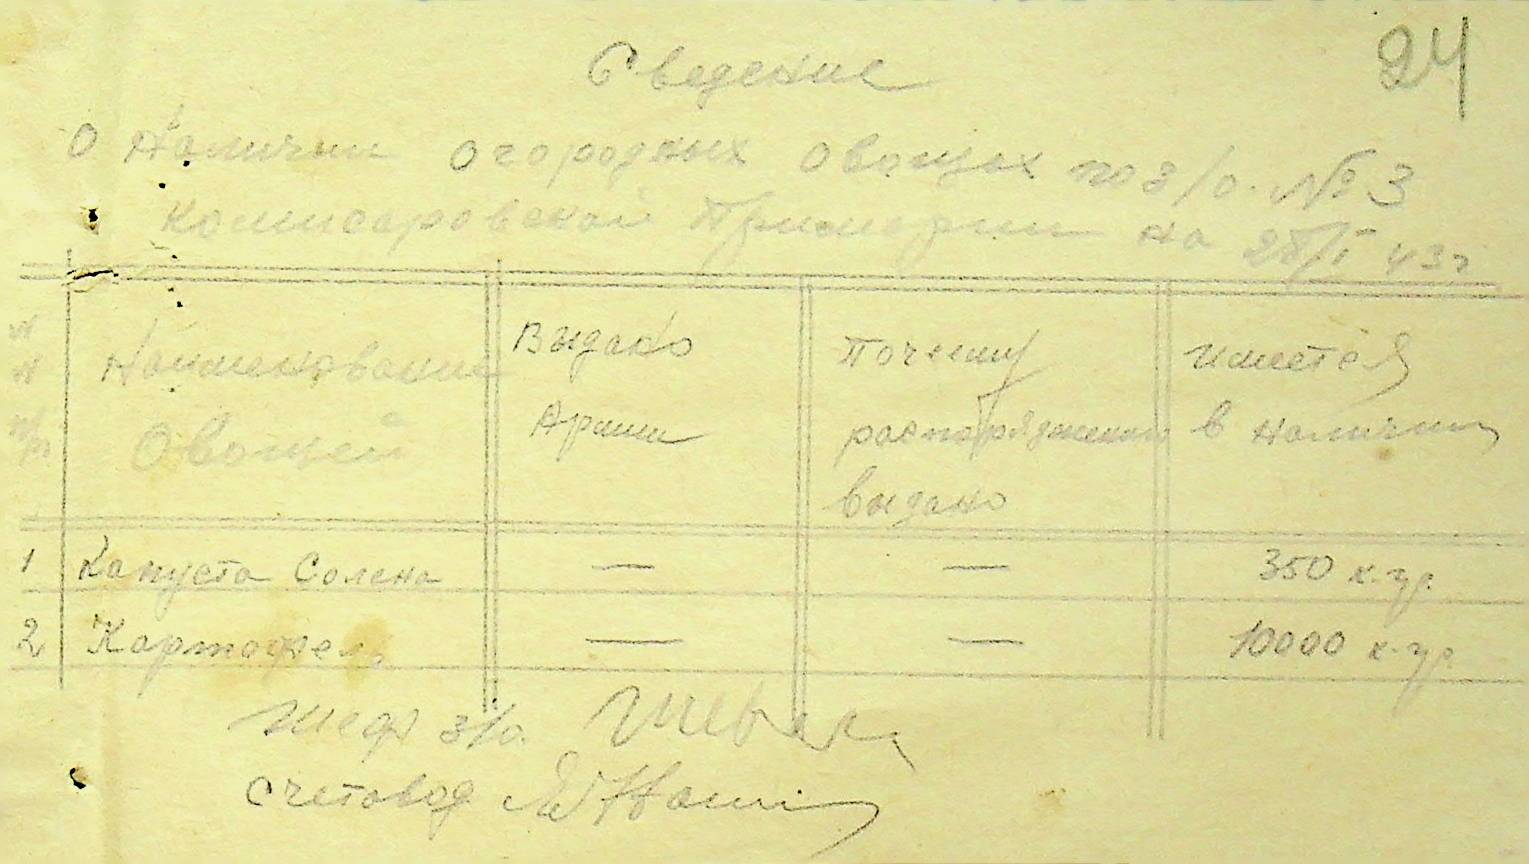 24
Сведение
о Наличии огородных овощых по з/о. № 3
Комисаровской Примерии на 28/I 43 г
N N п/п Наименование Овощей Выдано Армии По чему распоряжению выдано имеется в наличии
1 Капуста Солена — — 350 к.гр.
2 Картофель — — 10000 к.гр.
Шеф з/о.
Счетовод